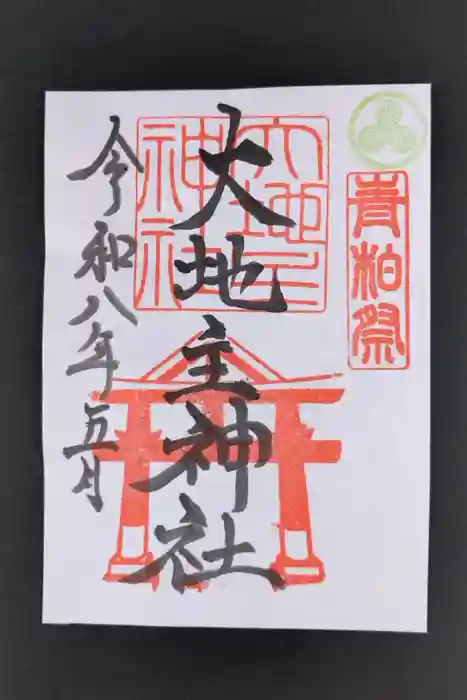 青柏祭
大地主神社
大地主神社
令和八年五月